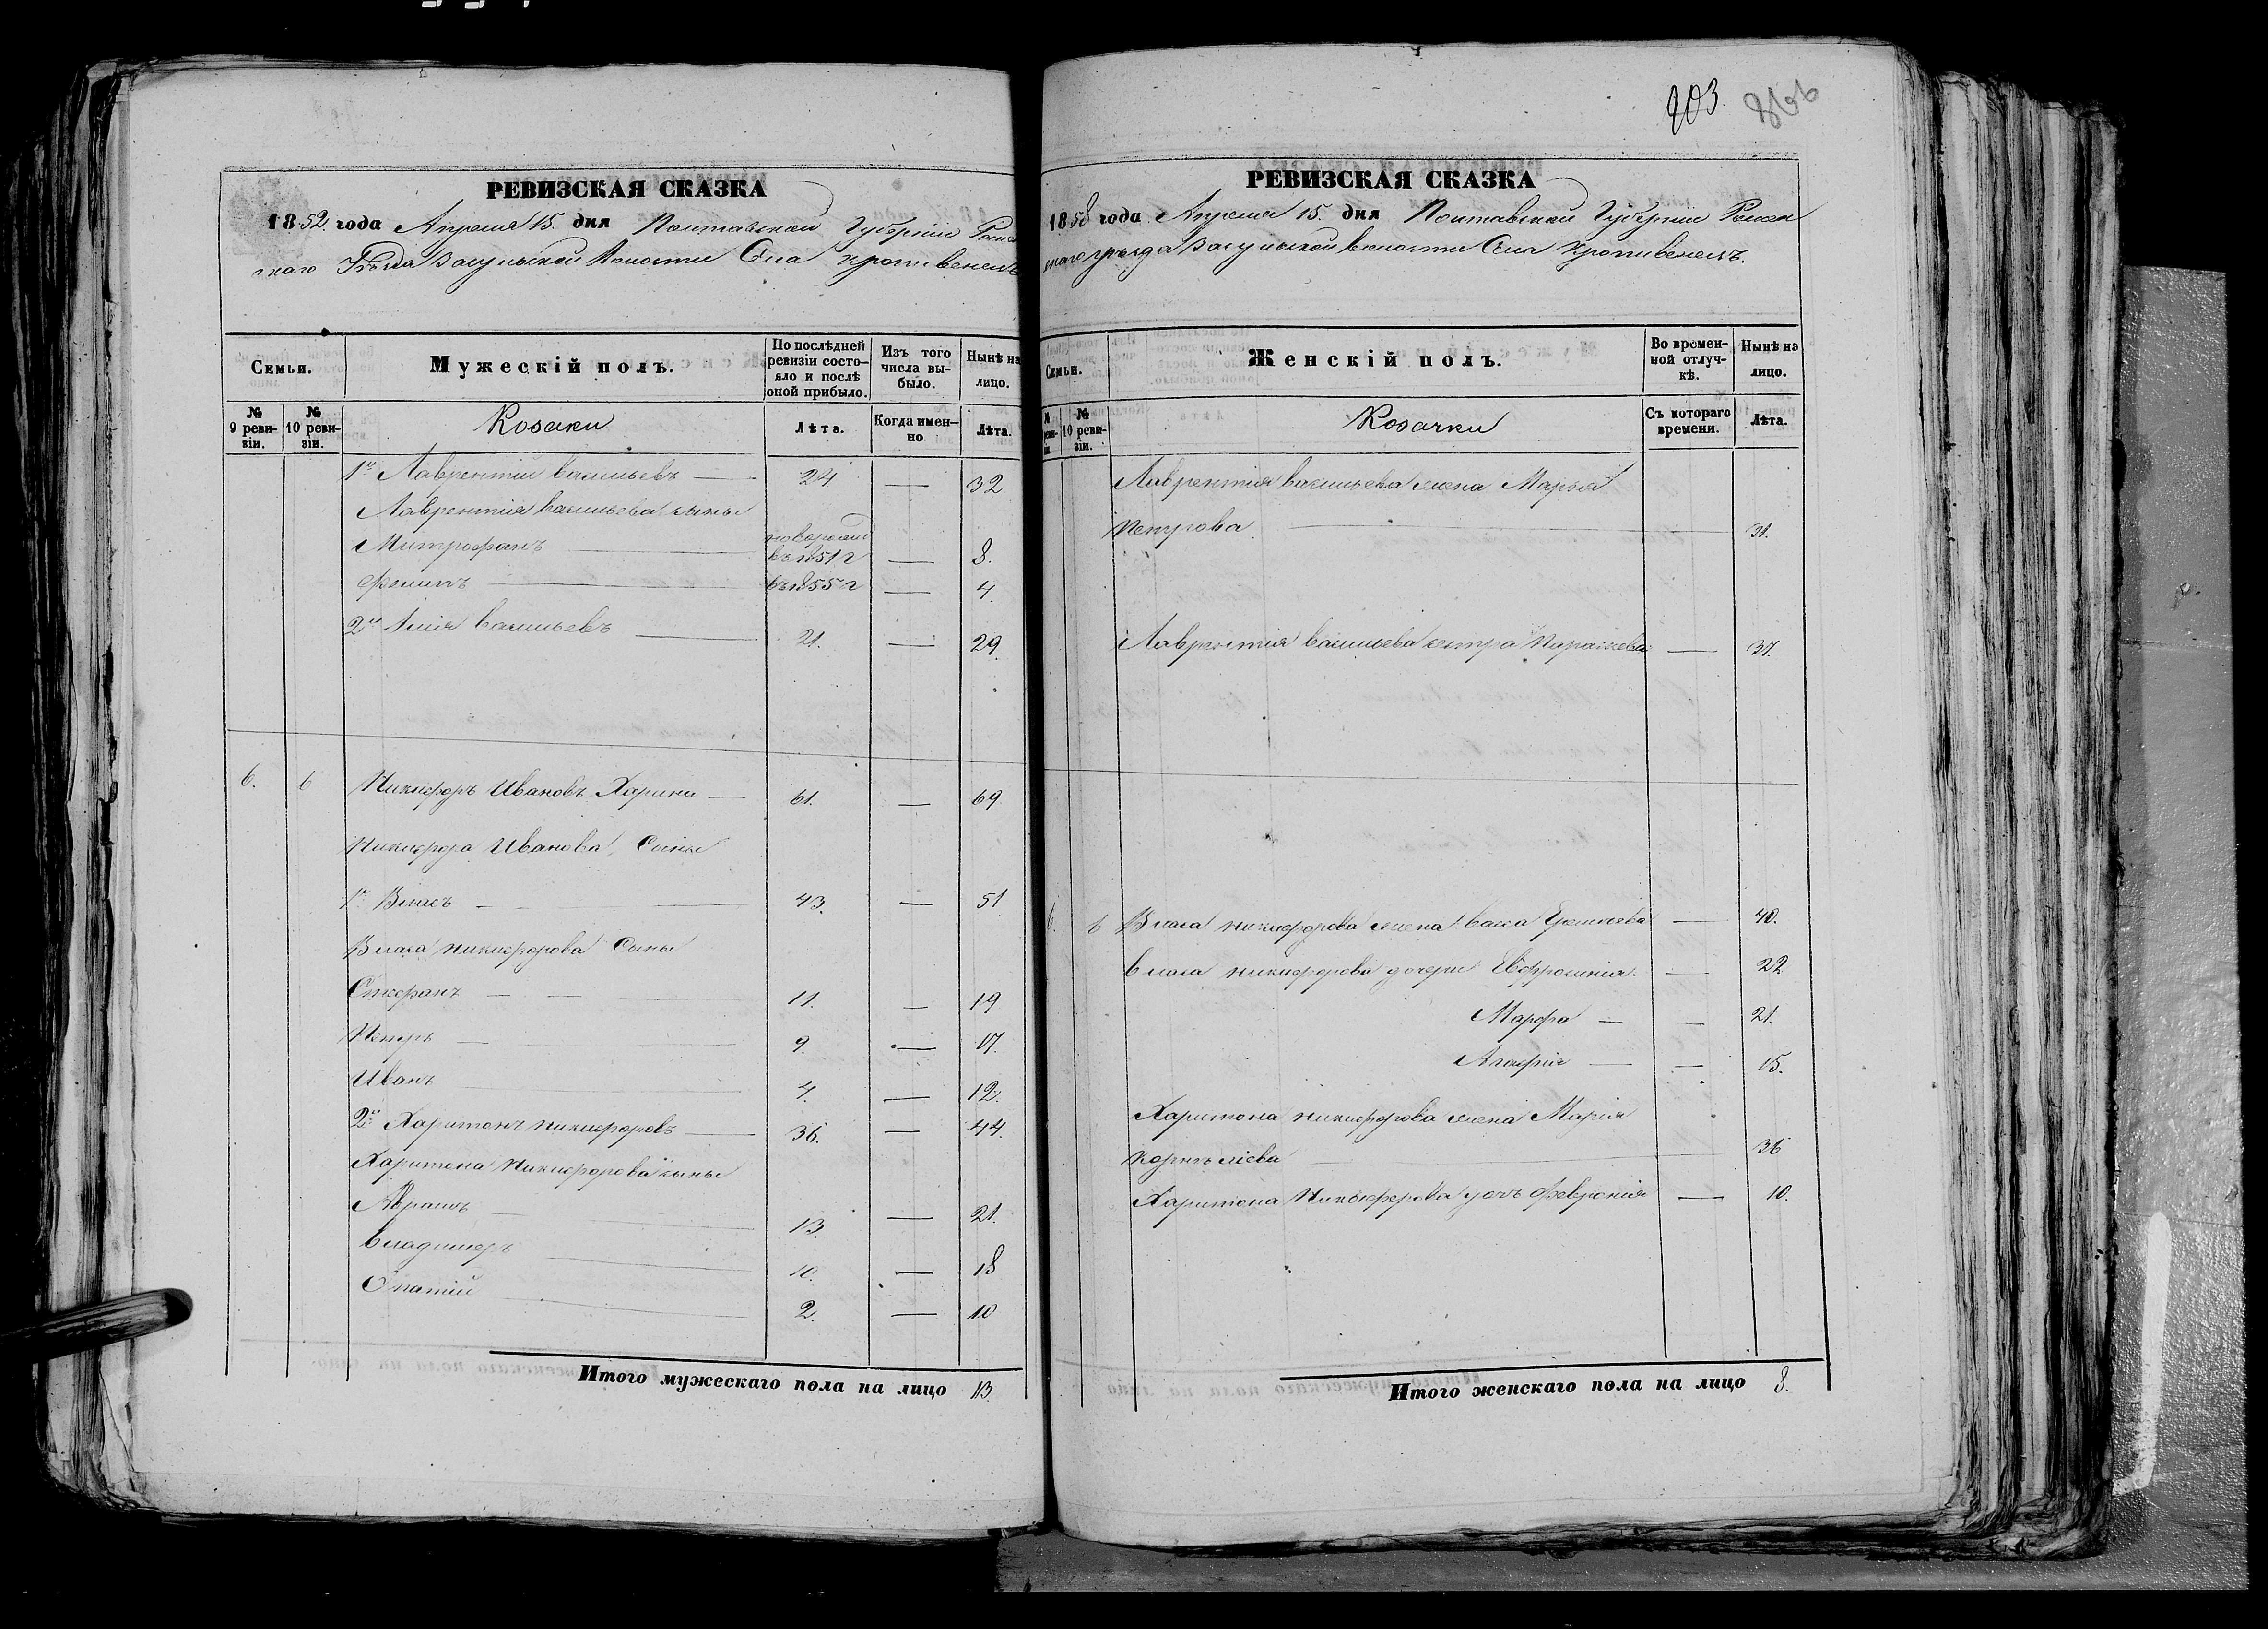 903.
РЕВИЗСКАЯ СКАЗКА
1852 года Апреля 15. дня Полтавской Губерніи Ромен
скаго Уѣзда Васульской Волости Села Кропивенецъ
Семьи.
Мужескій полъ.
По послѣдней ревизіи состояло и послѣ оной прибыло.
Изъ того числа выбыло.
Нынѣ на лицо.
№ 9 ревизіи.
№ 10 ревизіи.
Козаки
Лѣта.
Когда именно
Лѣта.
1й Лаврентій Васильевъ — 24 — 32
Лаврентія Васильева сыны
Митрофанъ — новорожд въ 1851 г — 8.
Филипъ — въ 1855 г — 4.
2й Васильевъ — 21. — 29.
6. 6 Никифоръ Ивановъ Харини — 61. — 69
Никифора Иванова Сыны
1й Власъ — 43. — 51
Власа Никифорова Сыны
Стефанъ — 11. — 19
Петръ — 9. — 17.
Иванъ — 4. — 12.
2й Харитонъ Никифоровъ — 36. — 44.
Харитона Никифорова сыны
Абрамъ — 13. — 21.
Владимеръ — 10. — 18
Опатій — 2. — 10
Итого мужескаго пола на лицо 13.
РЕВИЗСКАЯ СКАЗКА
1858 года Апреля 15. дня Полтавской Губерніи Ромен
скаго уѣзда Васульской волости Села Кропивенецъ.
Семьи.
Женскій полъ.
Во временной отлучкѣ.
Нынѣ на лицо.
№ ревизіи.
№ 10 ревизіи.
Козачки
Съ котораго времени.
Лѣта.
Лаврентія Васильева жена Марья
Петрова — 31.
Лаврентія Васильева сестра Параскева — 37.
6. 6 Власа Никифорова жена Васса — 48.
Власа Никифорова дочери Евфросинія — 22
Марфа — 21.
Агафія — 15.
Харитона Никифорова жена Марія
Корнѣліева — 36
Харитона Никифорова дочь Февронія — 10.
Итого женскаго пола на лицо 8.